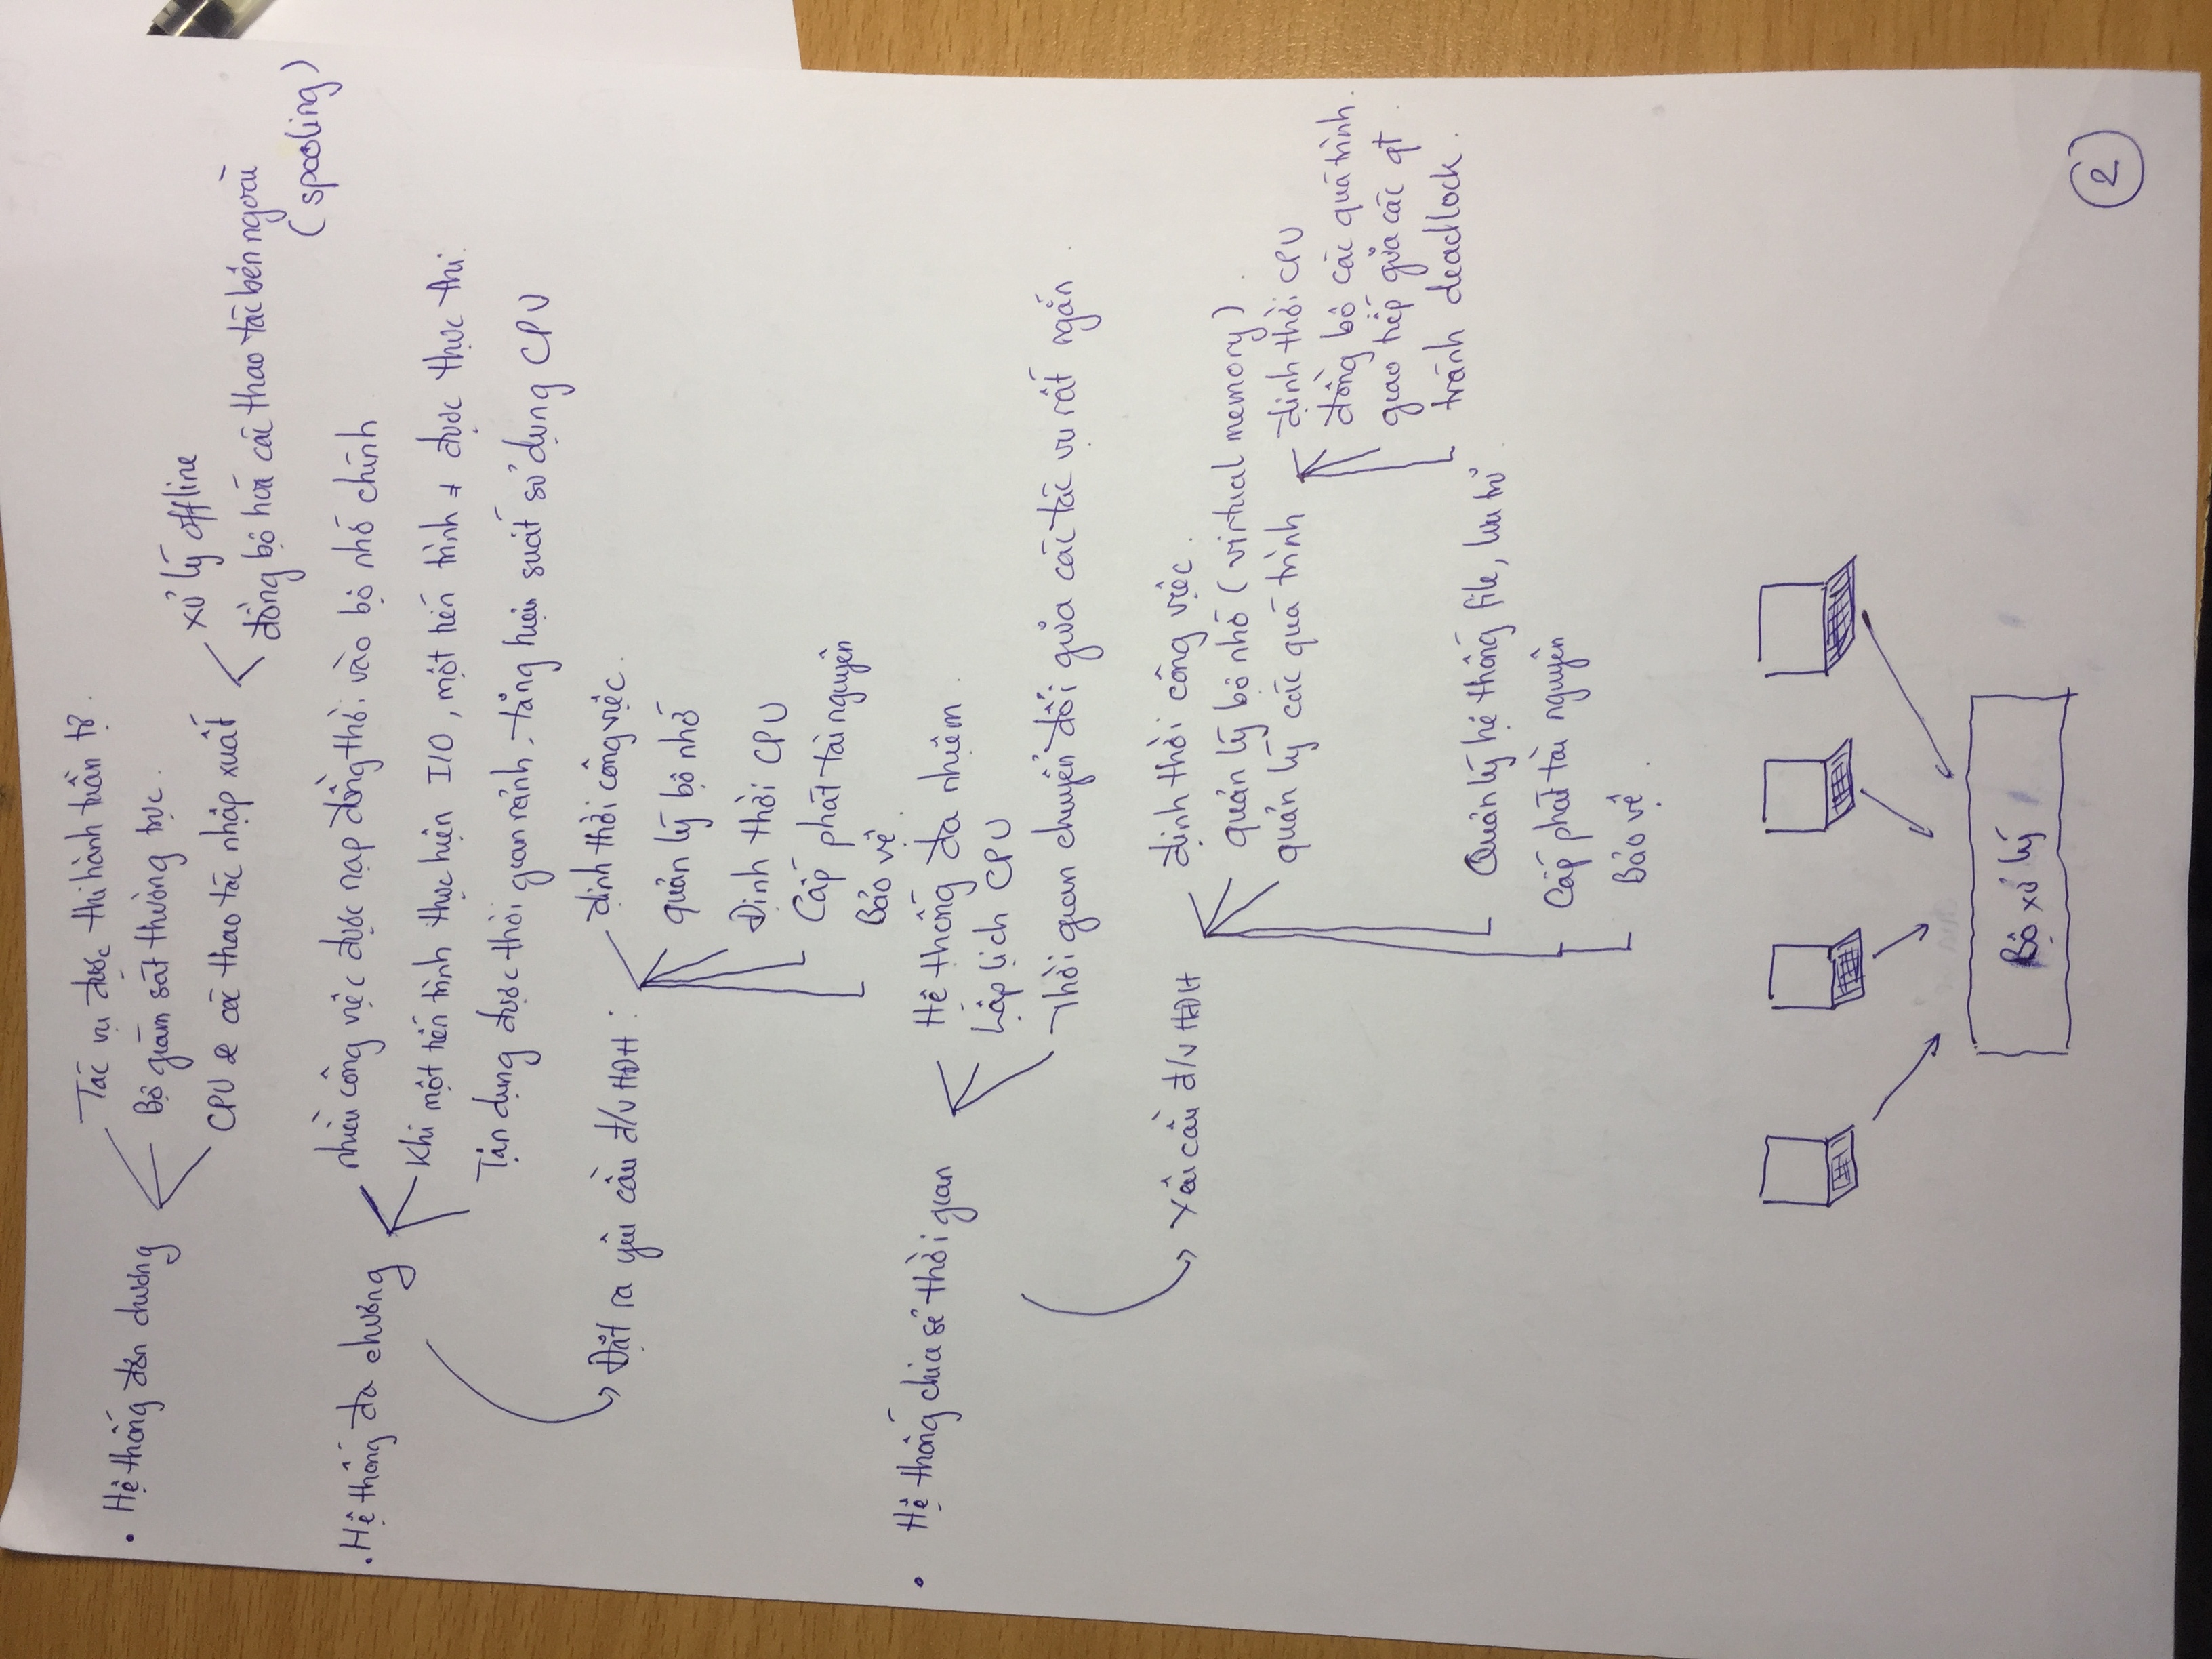 . Hệ thống đơn chương
Tác vụ được thi hành tuần tự.
Bộ giám sát thường trực.
CPU & các thao tác nhập xuất
xử lý offline
đồng bộ hoá các thao tác bên ngoài
(spooling)
. Hệ thống đa chương
nhiều công việc được nạp đồng thời vào bộ nhớ chính
Khi một tiến trình thực hiện I/O, một tiến trình ≠ được thực thi.
Tận dụng được thời gian rảnh, tăng hiệu suất sử dụng CPU
Đặt ra yêu cầu đ/v HĐH :
định thời công việc.
quản lý bộ nhớ
Định thời CPU
Cấp phát tài nguyên
Bảo vệ.
. Hệ thống chia sẻ thời gian
Hệ thống đa nhiệm.
Lập lịch CPU
Thời gian chuyển đổi giữa các tác vụ rất ngắn.
Yêu cầu đ/v HĐH
định thời công việc.
quản lý bộ nhớ (virtual memory).
quản lý các quá trình
định thời CPU
đồng bộ các quá trình.
giao tiếp giữa các qt.
tránh deadlock.
Quản lý hệ thống file, lưu trữ.
Cấp phát tài nguyên
Bảo vệ.
Bộ xử lý
2